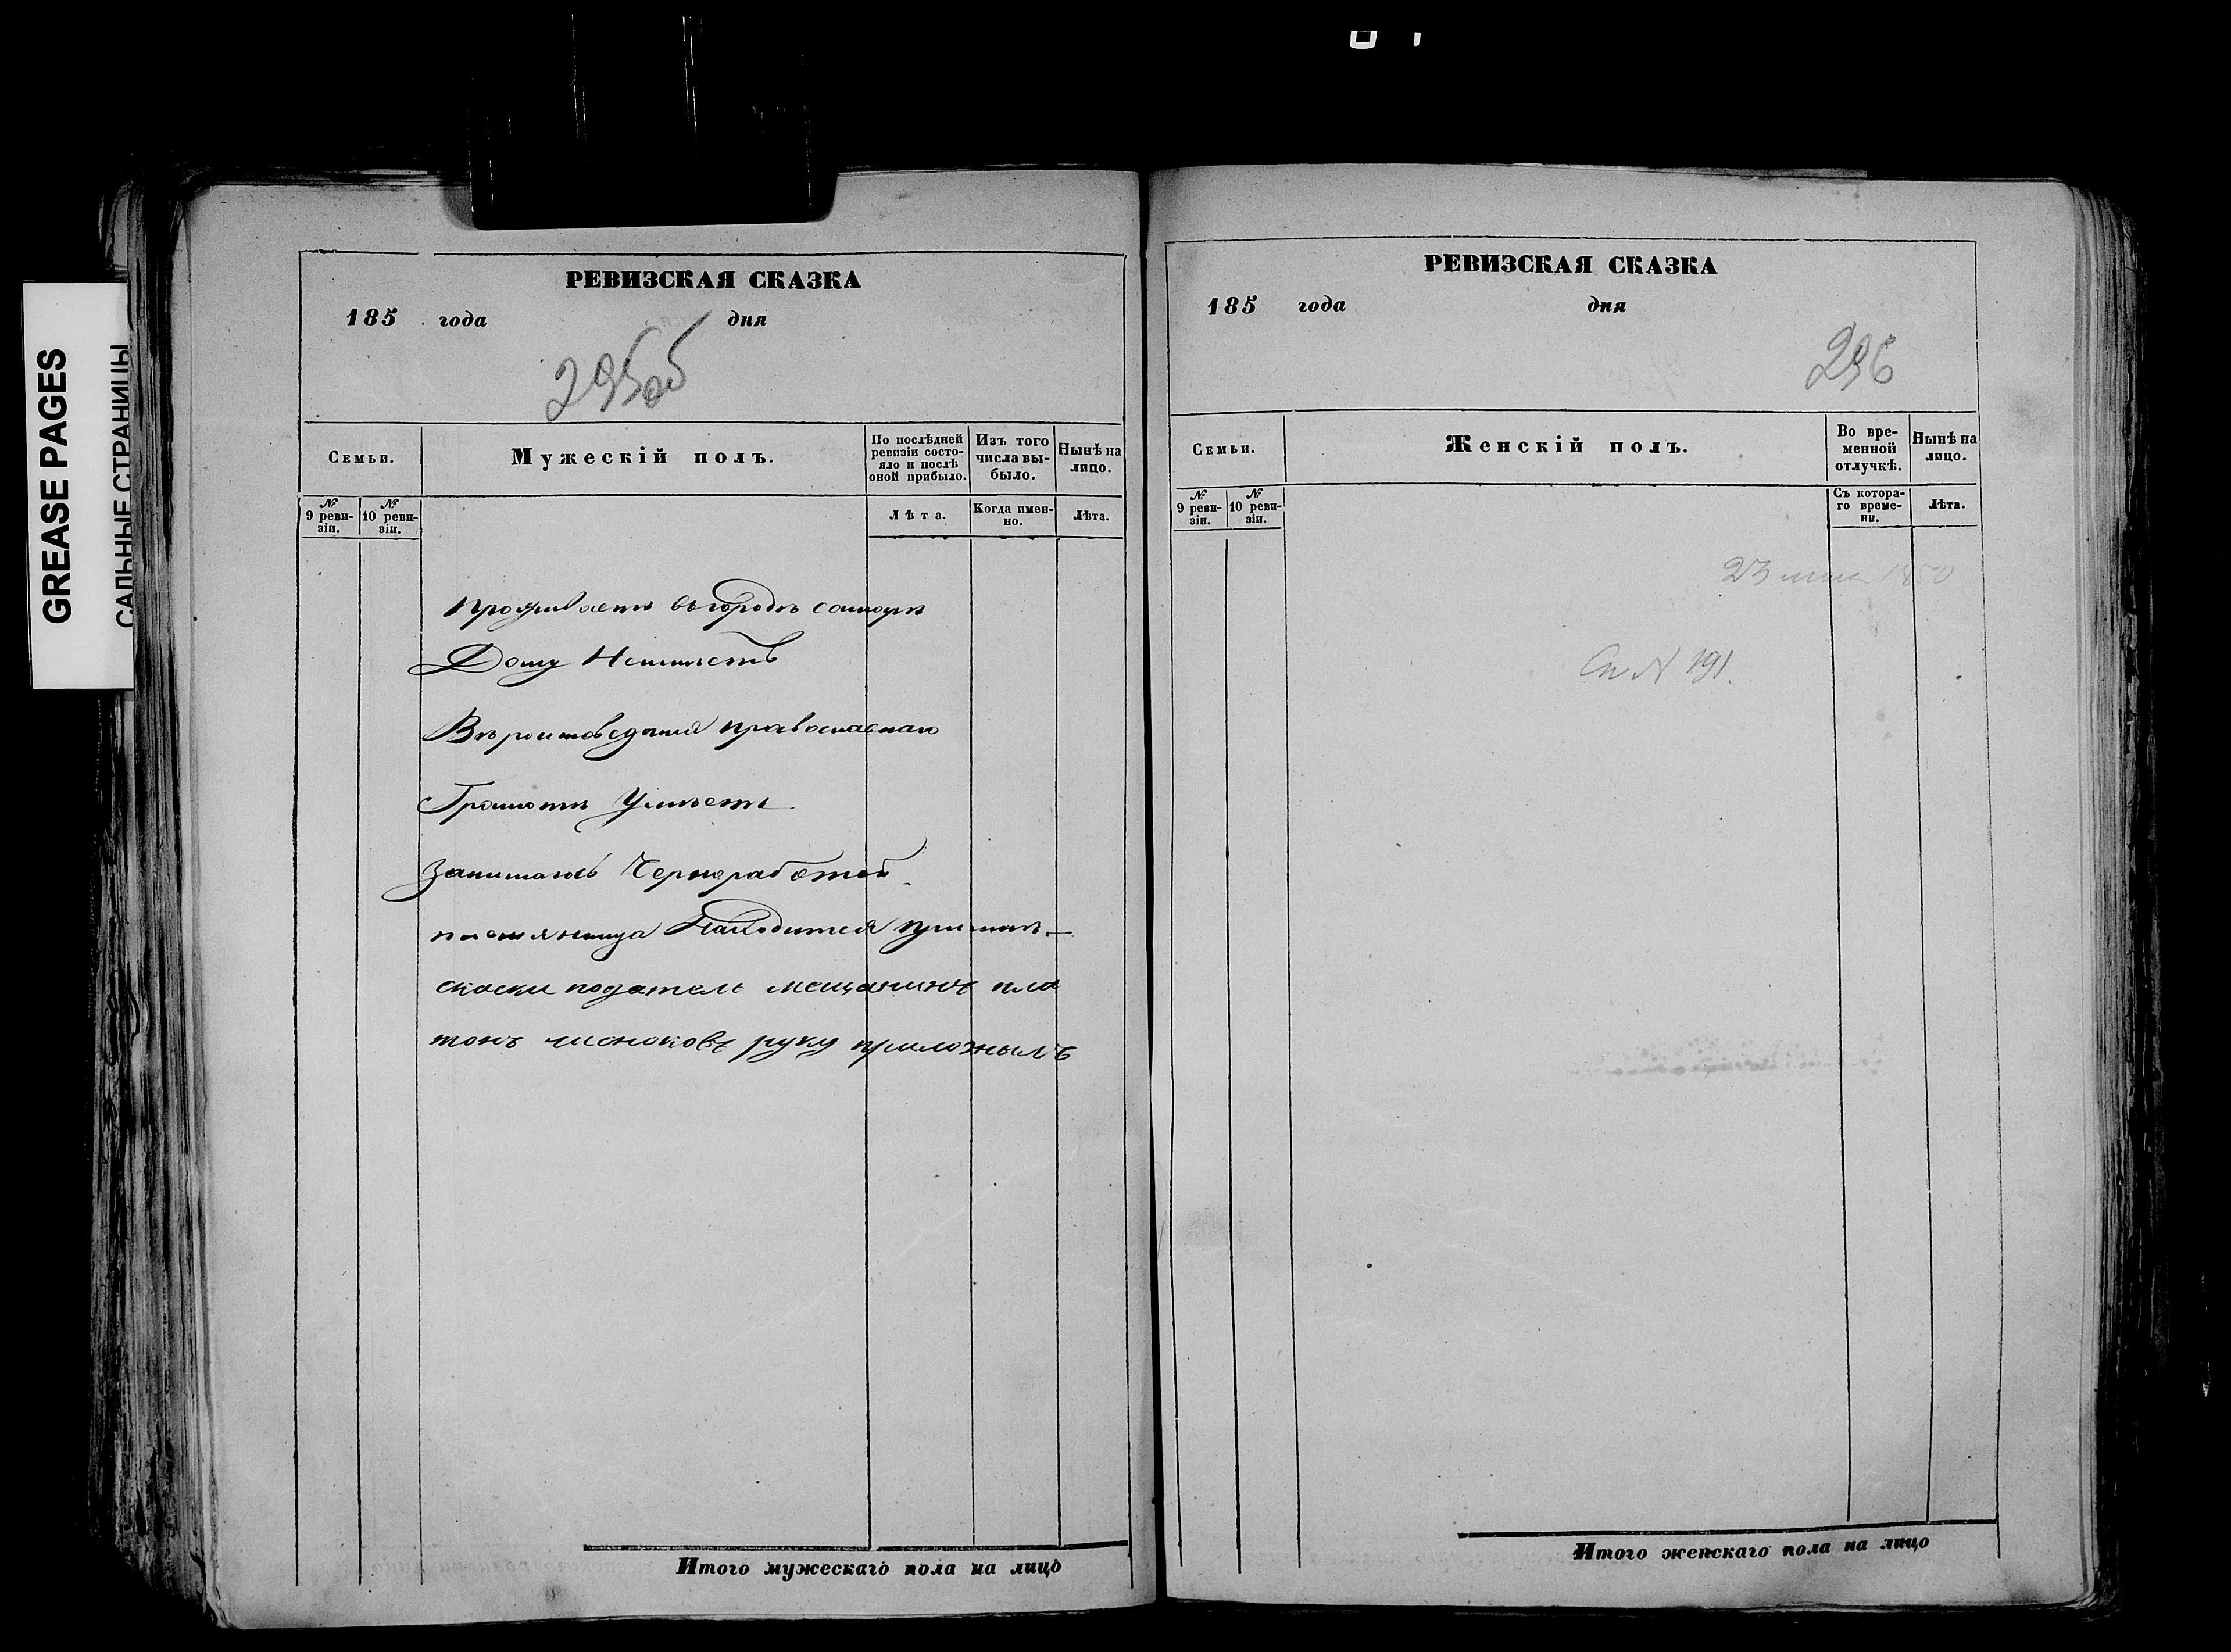 GREASE PAGES
САЛЬНЫЕ СТРАНИЦЫ
РЕВИЗСКАЯ СКАЗКА
185 года дня
295об
Семьи.
Мужескій полъ.
По послѣдней ревизіи состояло и послѣ оной прибыло.
Изъ того числа выбыло.
Нынѣ на лицо.
№ 9 ревизіи.
№ 10 ревизіи.
Лѣта.
Когда именно.
Лѣта.
Проживаетъ въ городѣ самарѣ
Дому Неимѣетъ
Вѣроисповеданія православнаго
Грамотѣ Умѣетъ
Занимаюсь Чернеработой
находится при
скаски податель мещанинъ пла
тонъ чесноковъ руку приложылъ
Итого мужескаго пола на лицо
РЕВИЗСКАЯ СКАЗКА
185 года дня
296
Семьи.
Женскій полъ.
Во временной отлучкѣ.
Нынѣ на лицо.
№ 9 ревизіи.
№ 10 ревизіи.
Съ котораго времени.
Лѣта.
23 мая 1850
См № 191.
Итого женскаго пола на лицо